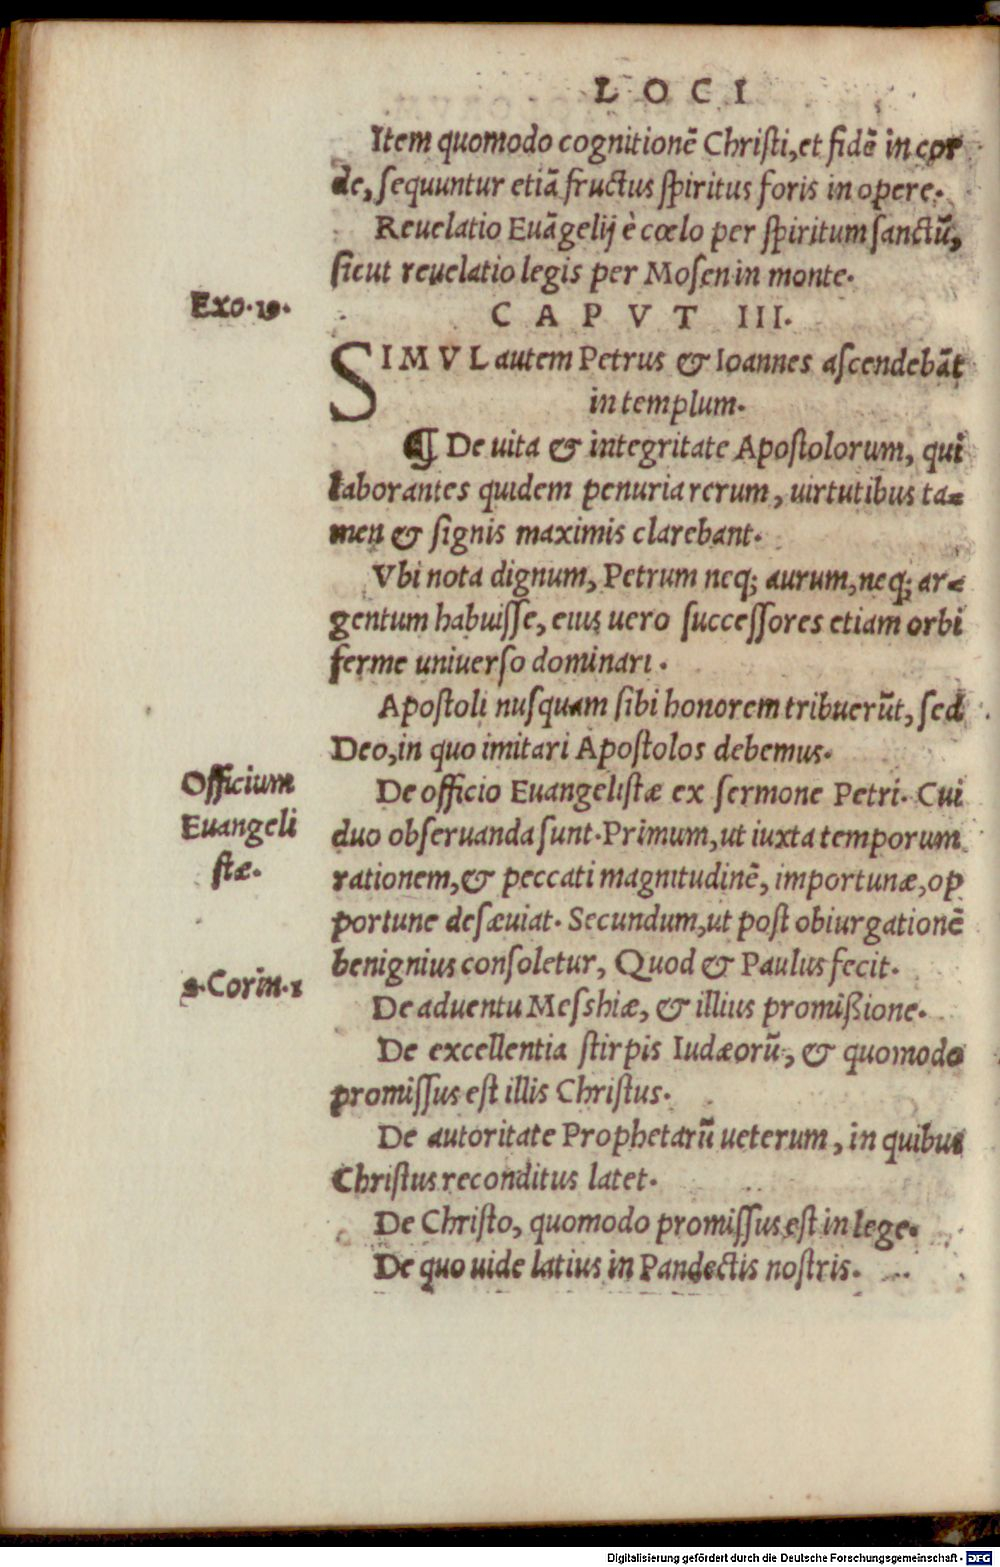 LOCI
Item quomodo cognitionē Chriſti, et fidē in cor
de, ſequuntur etiā fructus ſpiritus foris in opere.
Reuelatio Euāgelij è cœlo per ſpiritum ſanctū,
ſicut reuelatio legis per Moſen in monte.
Exo. 19.
CAPVT III.
SIMVL autem Petrus & Ioannes aſcendebāt
in templum.
¶ De uita & integritate Apoſtolorum, qui
laborantes quidem penuria rerum, uirtutibus ta-
men & ſignis maximis clarebant.
Vbi nota dignum, Petrum neq; aurum, neq; ar-
gentum habuiſſe, eius uero ſucceſſores etiam orbi
ferme uniuerſo dominari.
Apoſtoli nuſquam ſibi honorem tribuerūt, ſed
Deo, in quo imitari Apoſtolos debemus.
Officium
Euangeli
ſtæ.
De officio Euangeliſtæ ex ſermone Petri. Cui
duo obſeruanda ſunt. Primum, ut iuxta temporum
rationem, & peccati magnitudinē, importunæ, op
portune deſæuiat. Secundum, ut poſt obiurgationē
benignius conſoletur, Quod & Paulus fecit.
2. Corin. 1
De aduentu Meſshiæ, & illius promißione.
De excellentia ſtirpis Iudæorū, & quomodo
promiſſus eſt illis Chriſtus.
De autoritate Prophetarū ueterum, in quibus
Chriſtus reconditus latet.
De Chriſto, quomodo promiſſus eſt in lege.
De quo uide latius in Pandectis noſtris.
Digitalisierung gefördert durch die Deutsche Forschungsgemeinschaft - DFG